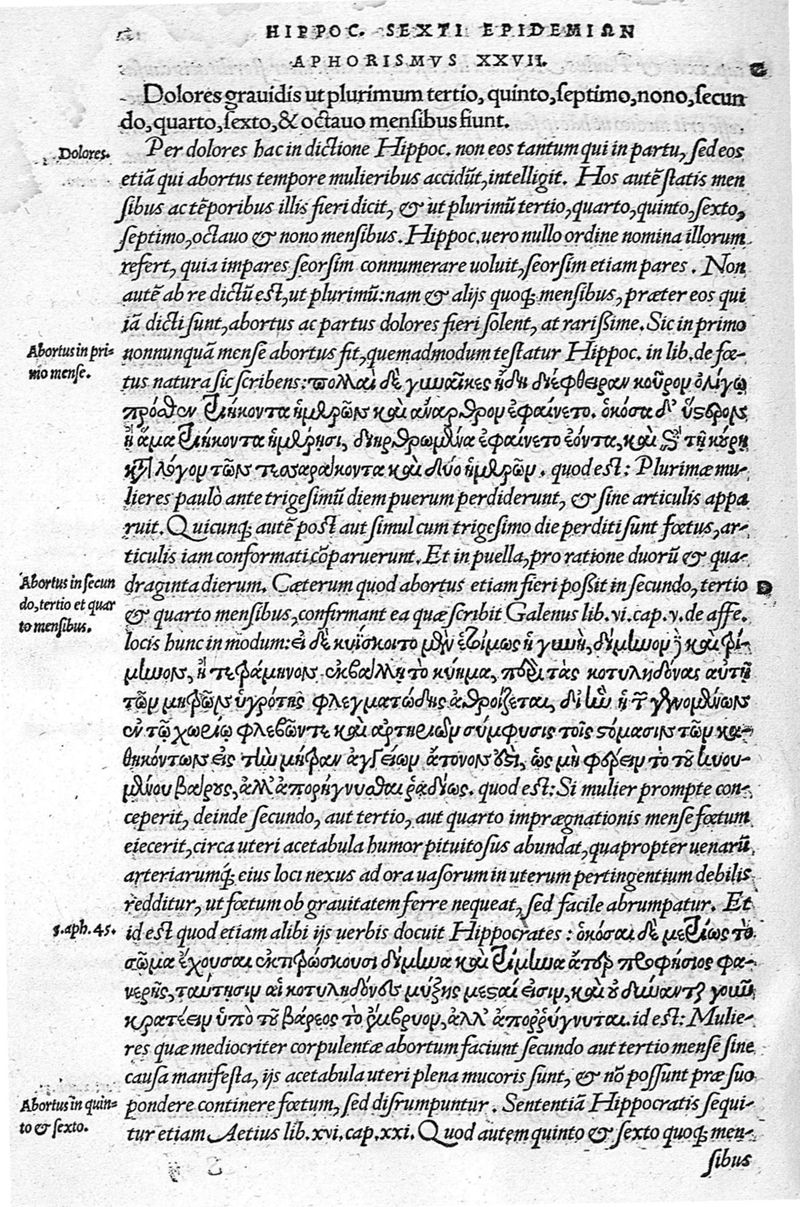 HIPPOC. SEXTI EPIDEMIΩN
APHORISMVS XXVII.
Dolores grauidis ut plurimum tertio, quinto, septimo, nono, secun
do, quarto, sexto, & octauo mensibus fiunt.
Dolores.
Per dolores hac in dictione Hippoc. non eos tantum qui in partu, sed eos
etiã qui abortus tempore mulieribus accidũt, intelligit. Hos autẽ statis men
sibus ac tẽporibus illis fieri dicit, & ut plurimũ tertio, quarto, quinto, sexto,
septimo, octauo & nono mensibus. Hippoc. uero nullo ordine nomina illorum
refert, quia impares seorsim connumerare uoluit, seorsim etiam pares. Non
autẽ ab re dictũ est, ut plurimũ: nam & alijs quoq; mensibus, præter eos qui
iã dicti sunt, abortus ac partus dolores fieri solent, at rarißime. Sic in primo
Abortus in pri-
mo mense.
nonnunquã mense abortus fit, quemadmodum testatur Hippoc. in lib. de fœ-
tus natura sic scribens: πολλαὶ δὲ γυναῖκες ἤδη διέφθειραν κοῦρον ὀλίγῳ
πρόσθεν τριήκοντα ἡμερῶν καὶ ἄναρθρον ἐφαίνετο. ὁκόσα δ' ὕστερον
ἢ ἅμα τριήκοντα ἡμέρῃσι, διηρθρωμένα ἐφαίνετο ἐόντα, καὶ ἐπὶ τῇ κούρῃ
κατὰ λόγον τῶν τεσσαράκοντα καὶ δύο ἡμερῶν. quod est: Plurimæ mu-
lieres paulò ante trigesimũ diem puerum perdiderunt, & sine articulis appa
ruit. Quicunq; autẽ post aut simul cum trigesimo die perditi sunt fœtus, ar-
ticulis iam conformati cõparuerunt. Et in puella, pro ratione duorũ & qua-
Abortus in secun
do, tertio et quar
to mensibus.
draginta dierum. Cæterum quod abortus etiam fieri poßit in secundo, tertio
& quarto mensibus, confirmant ea quæ scribit Galenus lib. vi. cap. v. de affe.
locis hunc in modum: εἰ δὲ κυΐσκοιτο μὲν ἑτοίμως ἡ γυνὴ, δίμηνον ἢ καὶ τρί-
μηνον, ἢ τετράμηνον ἐκβάλλῃ τὸ κύημα, περὶ τὰς κοτυληδόνας αὐτῇ
τῶν μητρῶν ὑγρότης φλεγματώδης ἀθροίζεται, δι' ἣν ἡ τῶν γιγνομένων
ἐν τῷ χωρίῳ φλεβῶν τε καὶ ἀρτηριῶν σύμφυσις τοῖς στόμασιν τῶν κα-
θηκόντων εἰς τὴν μήτραν ἀγγείων ἄτονος ἐστὶ, ὡς μὴ φέρειν τὸ τοῦ κυου-
μένου βάρος, ἀλλ' ἀπορήγνυσθαι ῥᾳδίως. quod est: Si mulier prompte con-
ceperit, deinde secundo, aut tertio, aut quarto imprægnationis mense fœtum
eiecerit, circa uteri acetabula humor pituitosus abundat, quapropter uenarũ
arteriarumq; eius loci nexus ad ora uasorum in uterum pertingentium debilis
redditur, ut fœtum ob grauitatem ferre nequeat, sed facile abrumpatur. Et
5. aph. 45.
id est quod etiam alibi ijs uerbis docuit Hippocrates: ὁκόσαι δὲ μετρίως τὸ
σῶμα ἔχουσαι ἐκτιτρώσκουσι δίμηνα καὶ τρίμηνα ἄτερ προφήσιος φα-
νερῆς, ταύτῃσιν αἱ κοτυληδόνες μύξης μεσταί εἰσιν, καὶ οὐ δύνανται
κρατέειν ὑπὸ τοῦ βάρεος τὸ ἔμβρυον, ἀλλ' ἀπορρήγνυται. id est: Mulie-
res quæ mediocriter corpulentæ abortum faciunt secundo aut tertio mense sine
causa manifesta, ijs acetabula uteri plena mucoris sunt, & nõ possunt præ suo
Abortus in quin-
to & sexto.
pondere continere fœtum, sed disrumpuntur. Sententiã Hippocratis sequi-
tur etiam Aetius lib. xvi. cap. xxi. Quod autem quinto & sexto quoq; men-
sibus
C
D